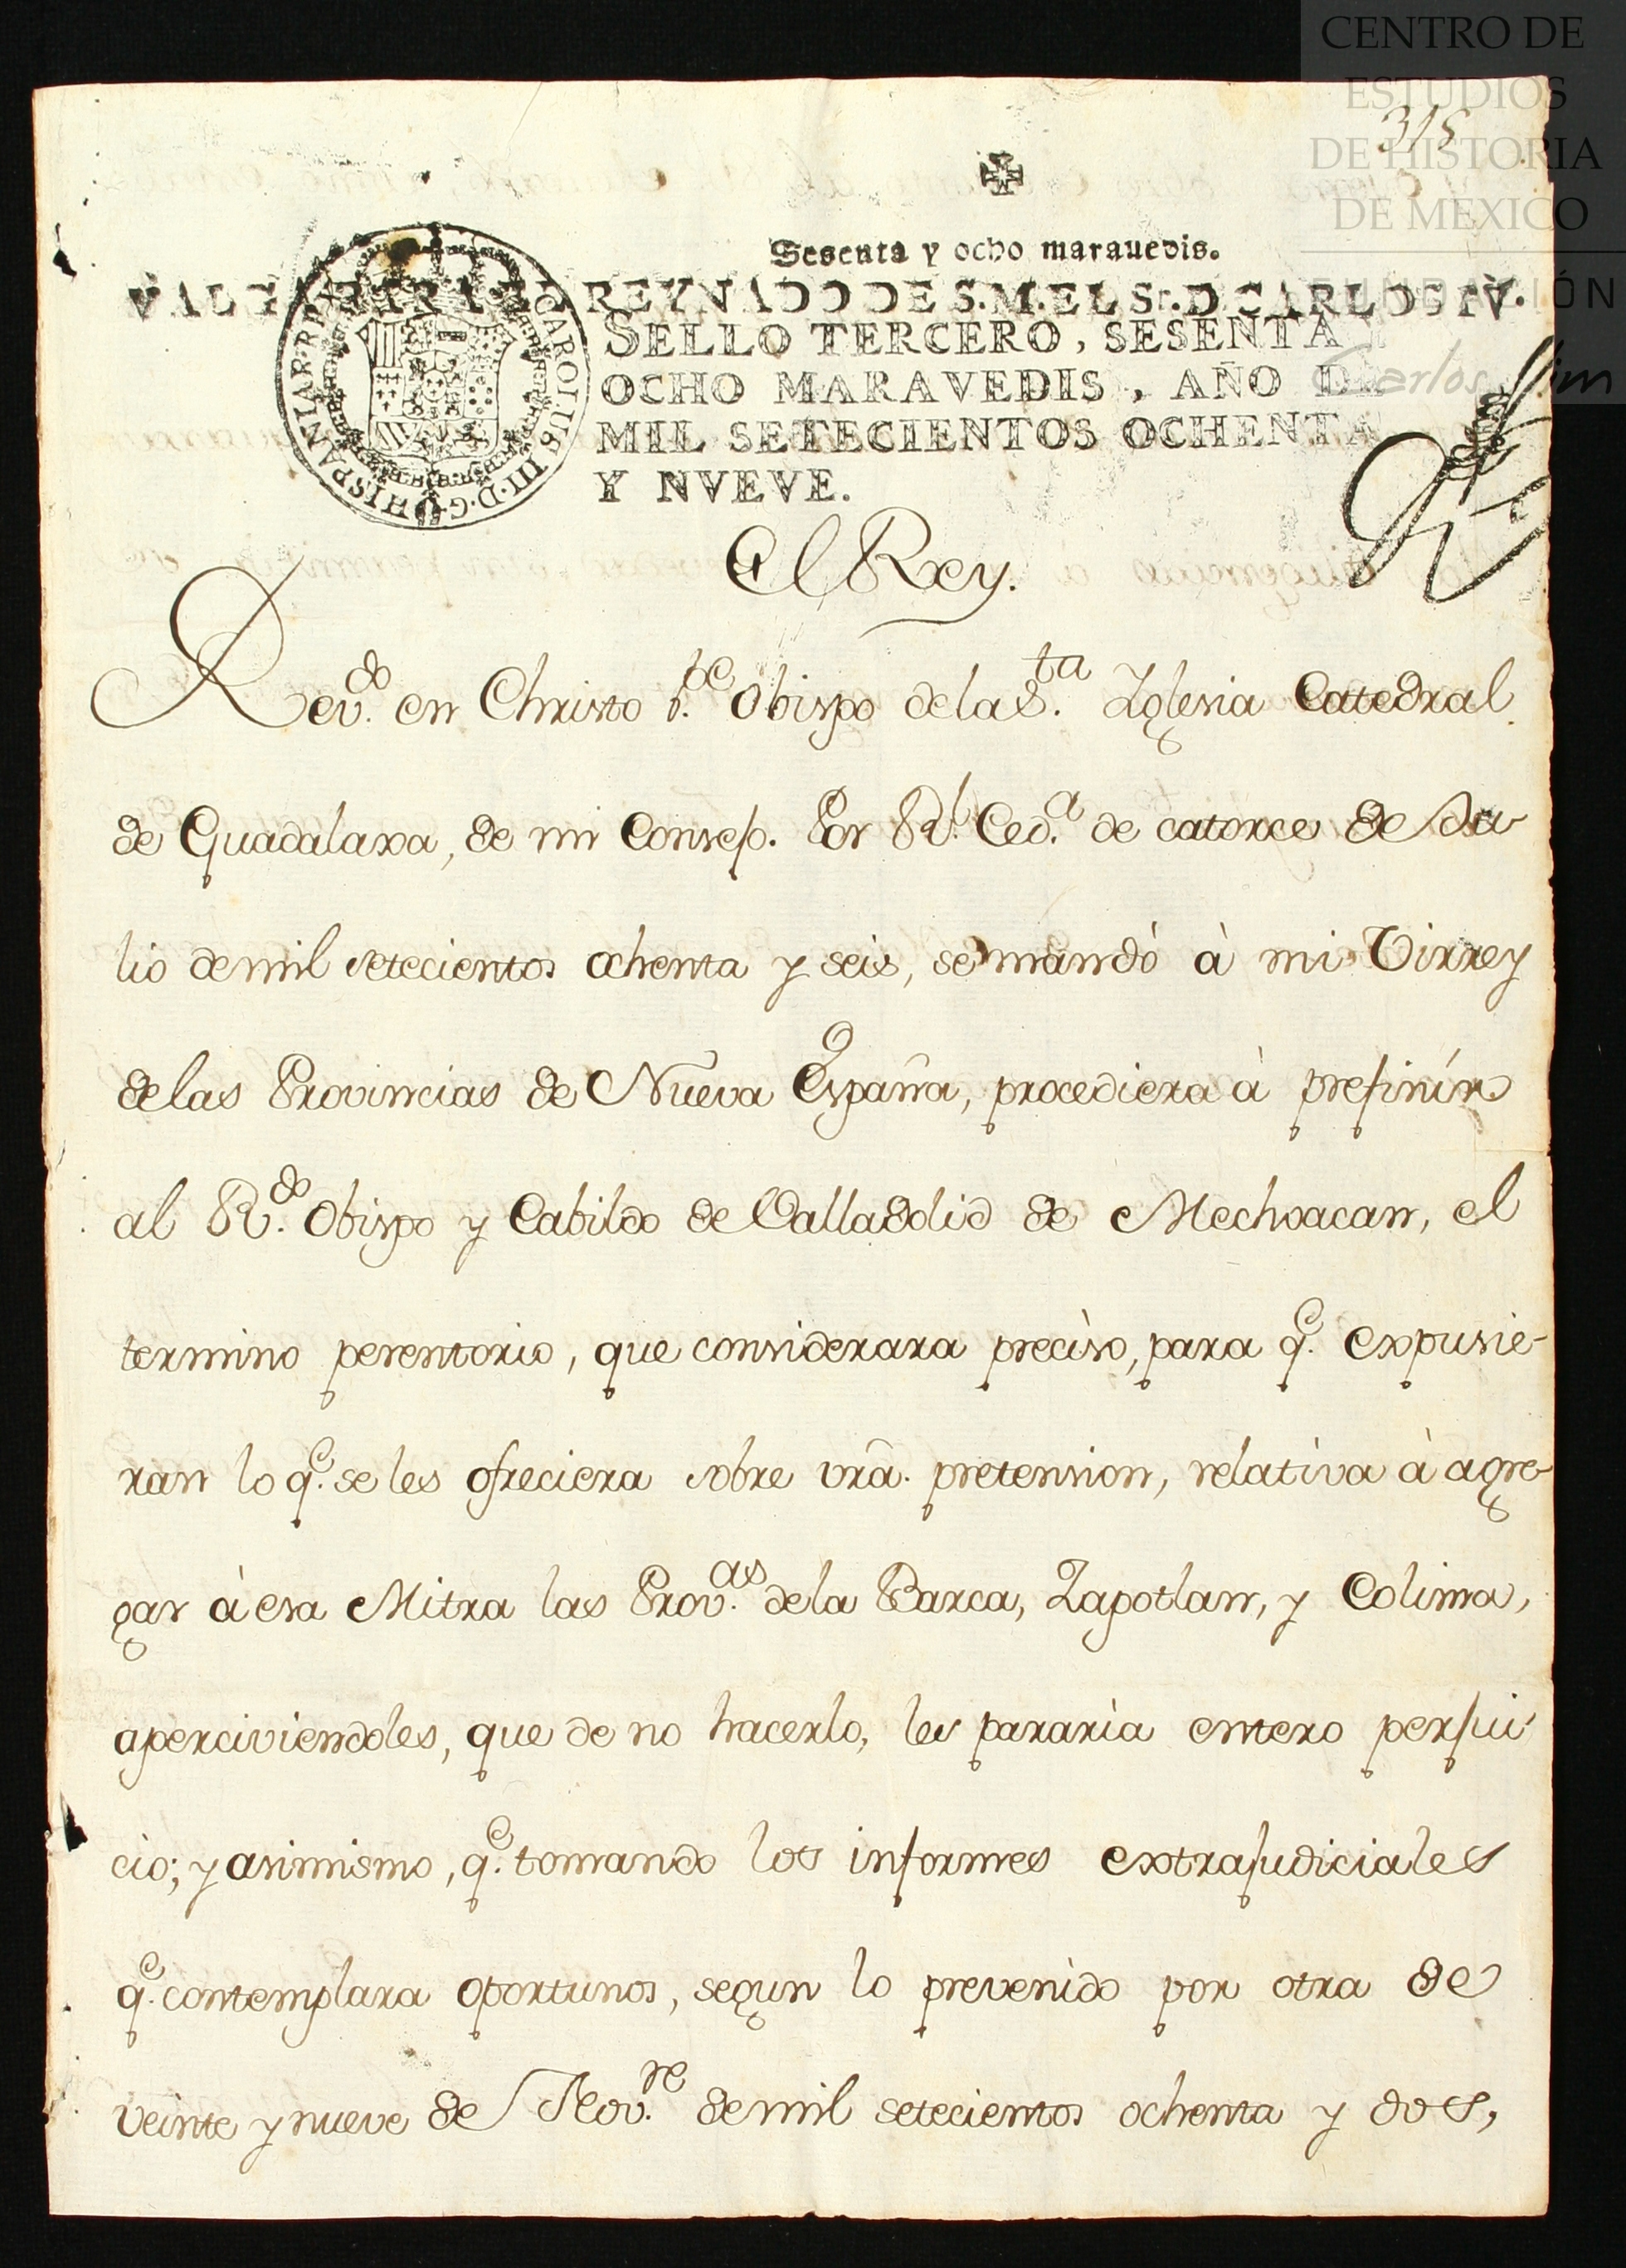 CENTRO DE
ESTUDIOS
DE HISTORIA
DE MEXICO
FUNDACIÓN
Carlos Slim
318
Sesenta y ocho marauedis.
VALGA PARA EL REYNADO DE S.M. EL Sr. D CARLOS IV.
SELLO TERCERO, SESENTA
OCHO MARAVEDIS, AÑO DE
MIL SETECIENTOS OCHENTA
Y NVEVE.
CAROLUS III·D·G·HISPANIAR·R
El Rey.
Rev.do en Christo P.e Obispo dela S.ta Iglesia Catedral
de Guadalaxa, de mi Consejo. Por Rl. Ced.a de catorce de Ju-
lio de mil setecientos ochenta y seis, se mandó à mi Virrey
delas Provincias de Nueva España, procediera à prefinír
al R.do Obispo y Cabildo de Valladolid de Mechoacan, el
termino perentorio, que considerara preciso, para q.e expusie-
ran lo q.e se les ofreciera sobre vrã. pretension, relatíva à agre-
gar à esa Mitra las Prov.as dela Barca, Zapotlan, y Colima,
aperciviendoles, que de no hacerlo, les pararìa entero perjui-
cio; y asimismo, q.e tomando los informes extrajudiciales
q.e contemplara oportunos, segun lo prevenido por otra de
veinte y nueve de Nov.re de mil setecientos ochenta y dos,